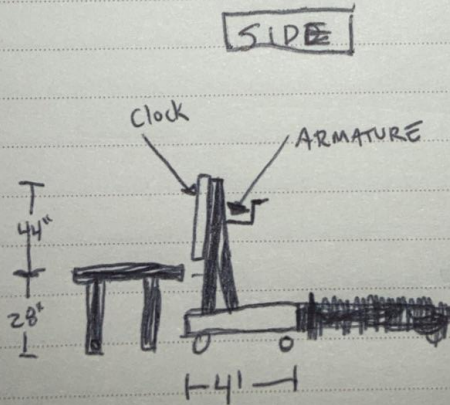 SIDE
Clock
ARMATURE
44"
28"
4'